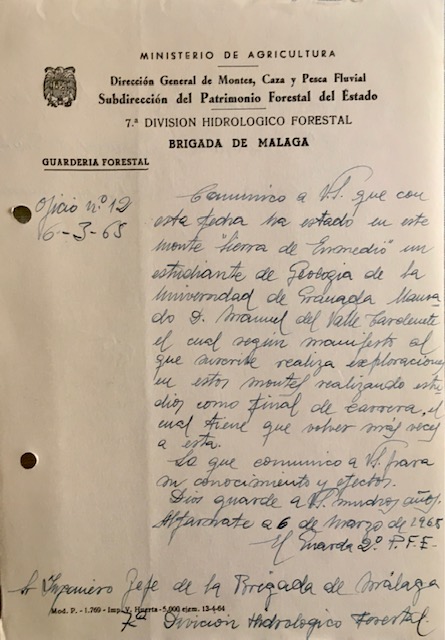 MINISTERIO DE AGRICULTURA
Dirección General de Montes, Caza y Pesca Fluvial
Subdirección del Patrimonio Forestal del Estado
7.ª DIVISION HIDROLOGICO FORESTAL
BRIGADA DE MALAGA
GUARDERIA FORESTAL
Oficio nº 12
6-3-65
Comunico a V.S. que con
esta fecha ha estado en este
monte "Sierra de Enmedio" un
estudiante de Geologia de la
Universidad de Granada llama-
do D. Manuel del Valle Cardenete
el cual segun manifesto al
que suscribe realiza exploraciones
en estos montes realizando estu-
dios como final de carrera, el
cual tiene que volver más veces
a esta.
Lo que comunico a V.S. para
su conocimiento y efectos.
Dios guarde a V.S. muchos años.
Alfarnate a 6 de Marzo de 1965
El Guarda 2º P.F.E.
Sr Ingeniero Jefe de la Brigada de Málaga
7ª División Hidrologico Forestal.
Mod. P. - 1.769 - Imp. V. Huerta - 5.000 ejem. 13-4-64